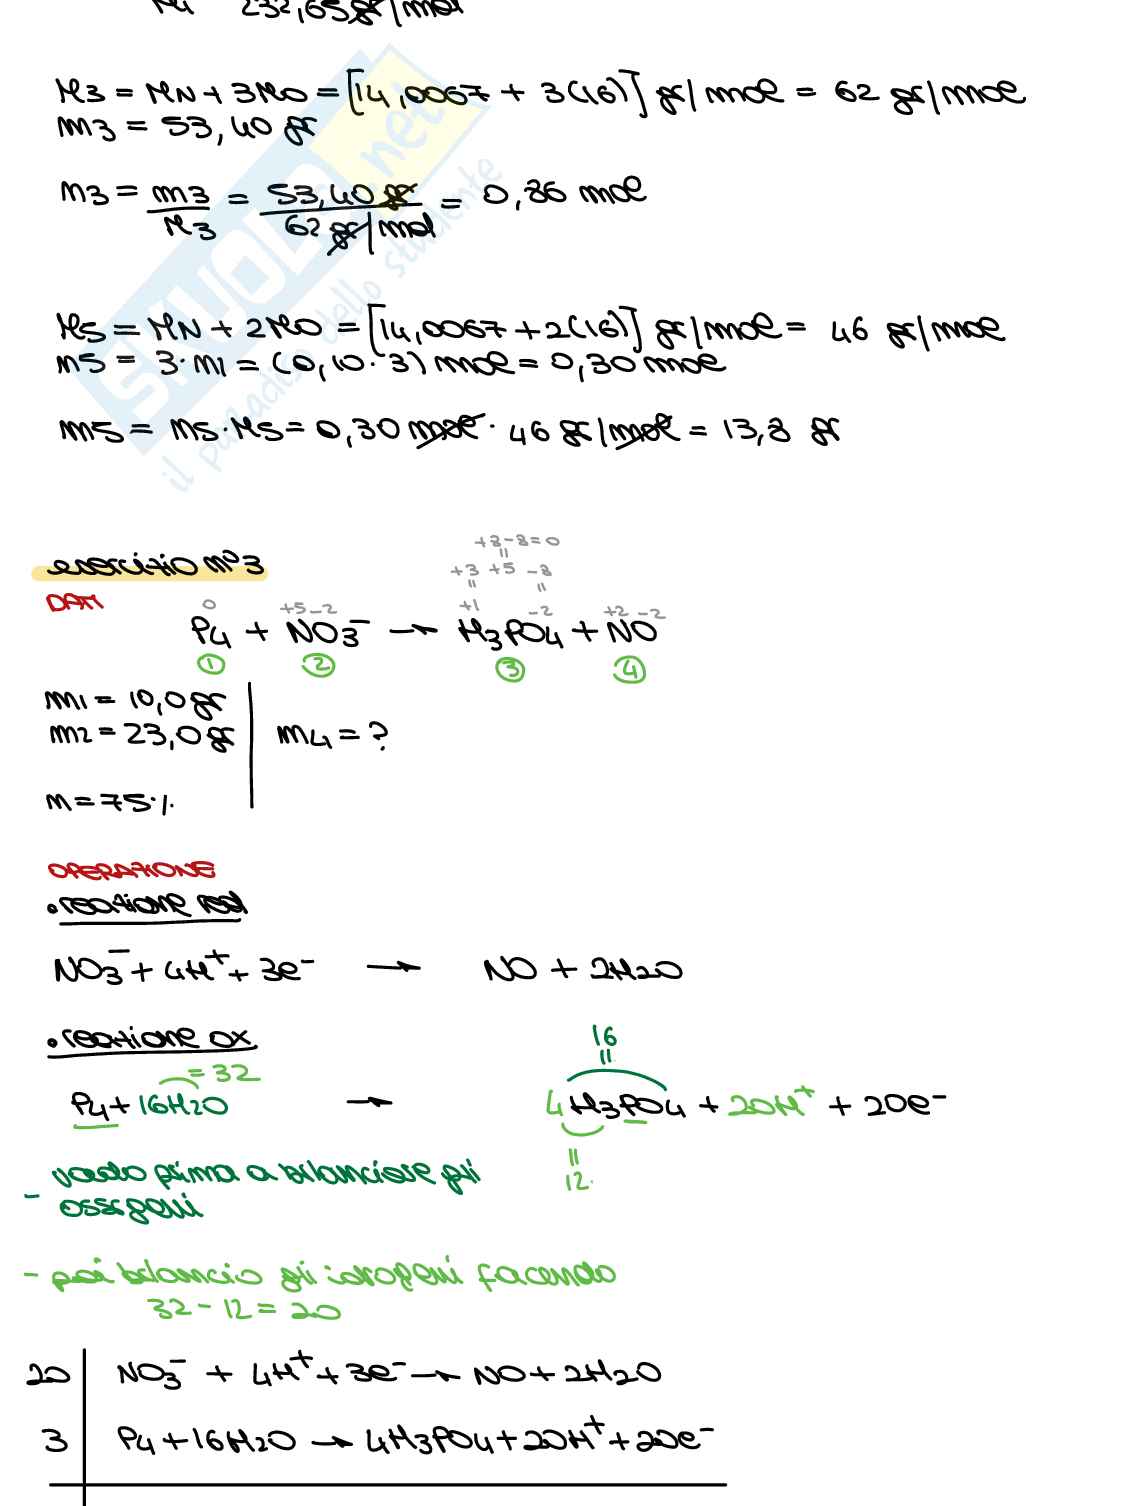 M4 232,65 gr/mol
M3 = MN + 3MO = [14,0067 + 3(16)] gr/mole = 62 gr/mole
m3 = 53,40 gr
n3 = m3/M3 = 53,40 gr / 62 gr/mol = 0,86 mole
M5 = MN + 2MO = [14,0067 + 2(16)] gr/mole = 46 gr/mole
n5 = 3·n1 = (0,10·3) mole = 0,30 mole
m5 = n5·M5 = 0,30 mole · 46 gr/mole = 13,8 gr
SKUOLA.net
il paradiso dello studente
esercizio n°3
DATI
+8-8=0
=
+3 +5 -8
= =
0 +5 -2 +1 -2 +2 -2
P4 + NO3⁻ → H3PO4 + NO
1 2 3 4
m1 = 10,0 gr
m2 = 23,0 gr m4 = ?
n = 75%
OPERAZIONE
• reazione red
NO3⁻ + 4H⁺ + 3e⁻ → NO + 2H2O
• reazione ox
16
=
= 32
P4 + 16H2O → 4H3PO4 + 20H⁺ + 20e⁻
=
12
- vado prima a bilanciare gli
ossigeni
- poi bilancio gli idrogeni facendo
32 - 12 = 20
20 NO3⁻ + 4H⁺ + 3e⁻ → NO + 2H2O
3 P4 + 16H2O → 4H3PO4 + 20H⁺ + 20e⁻